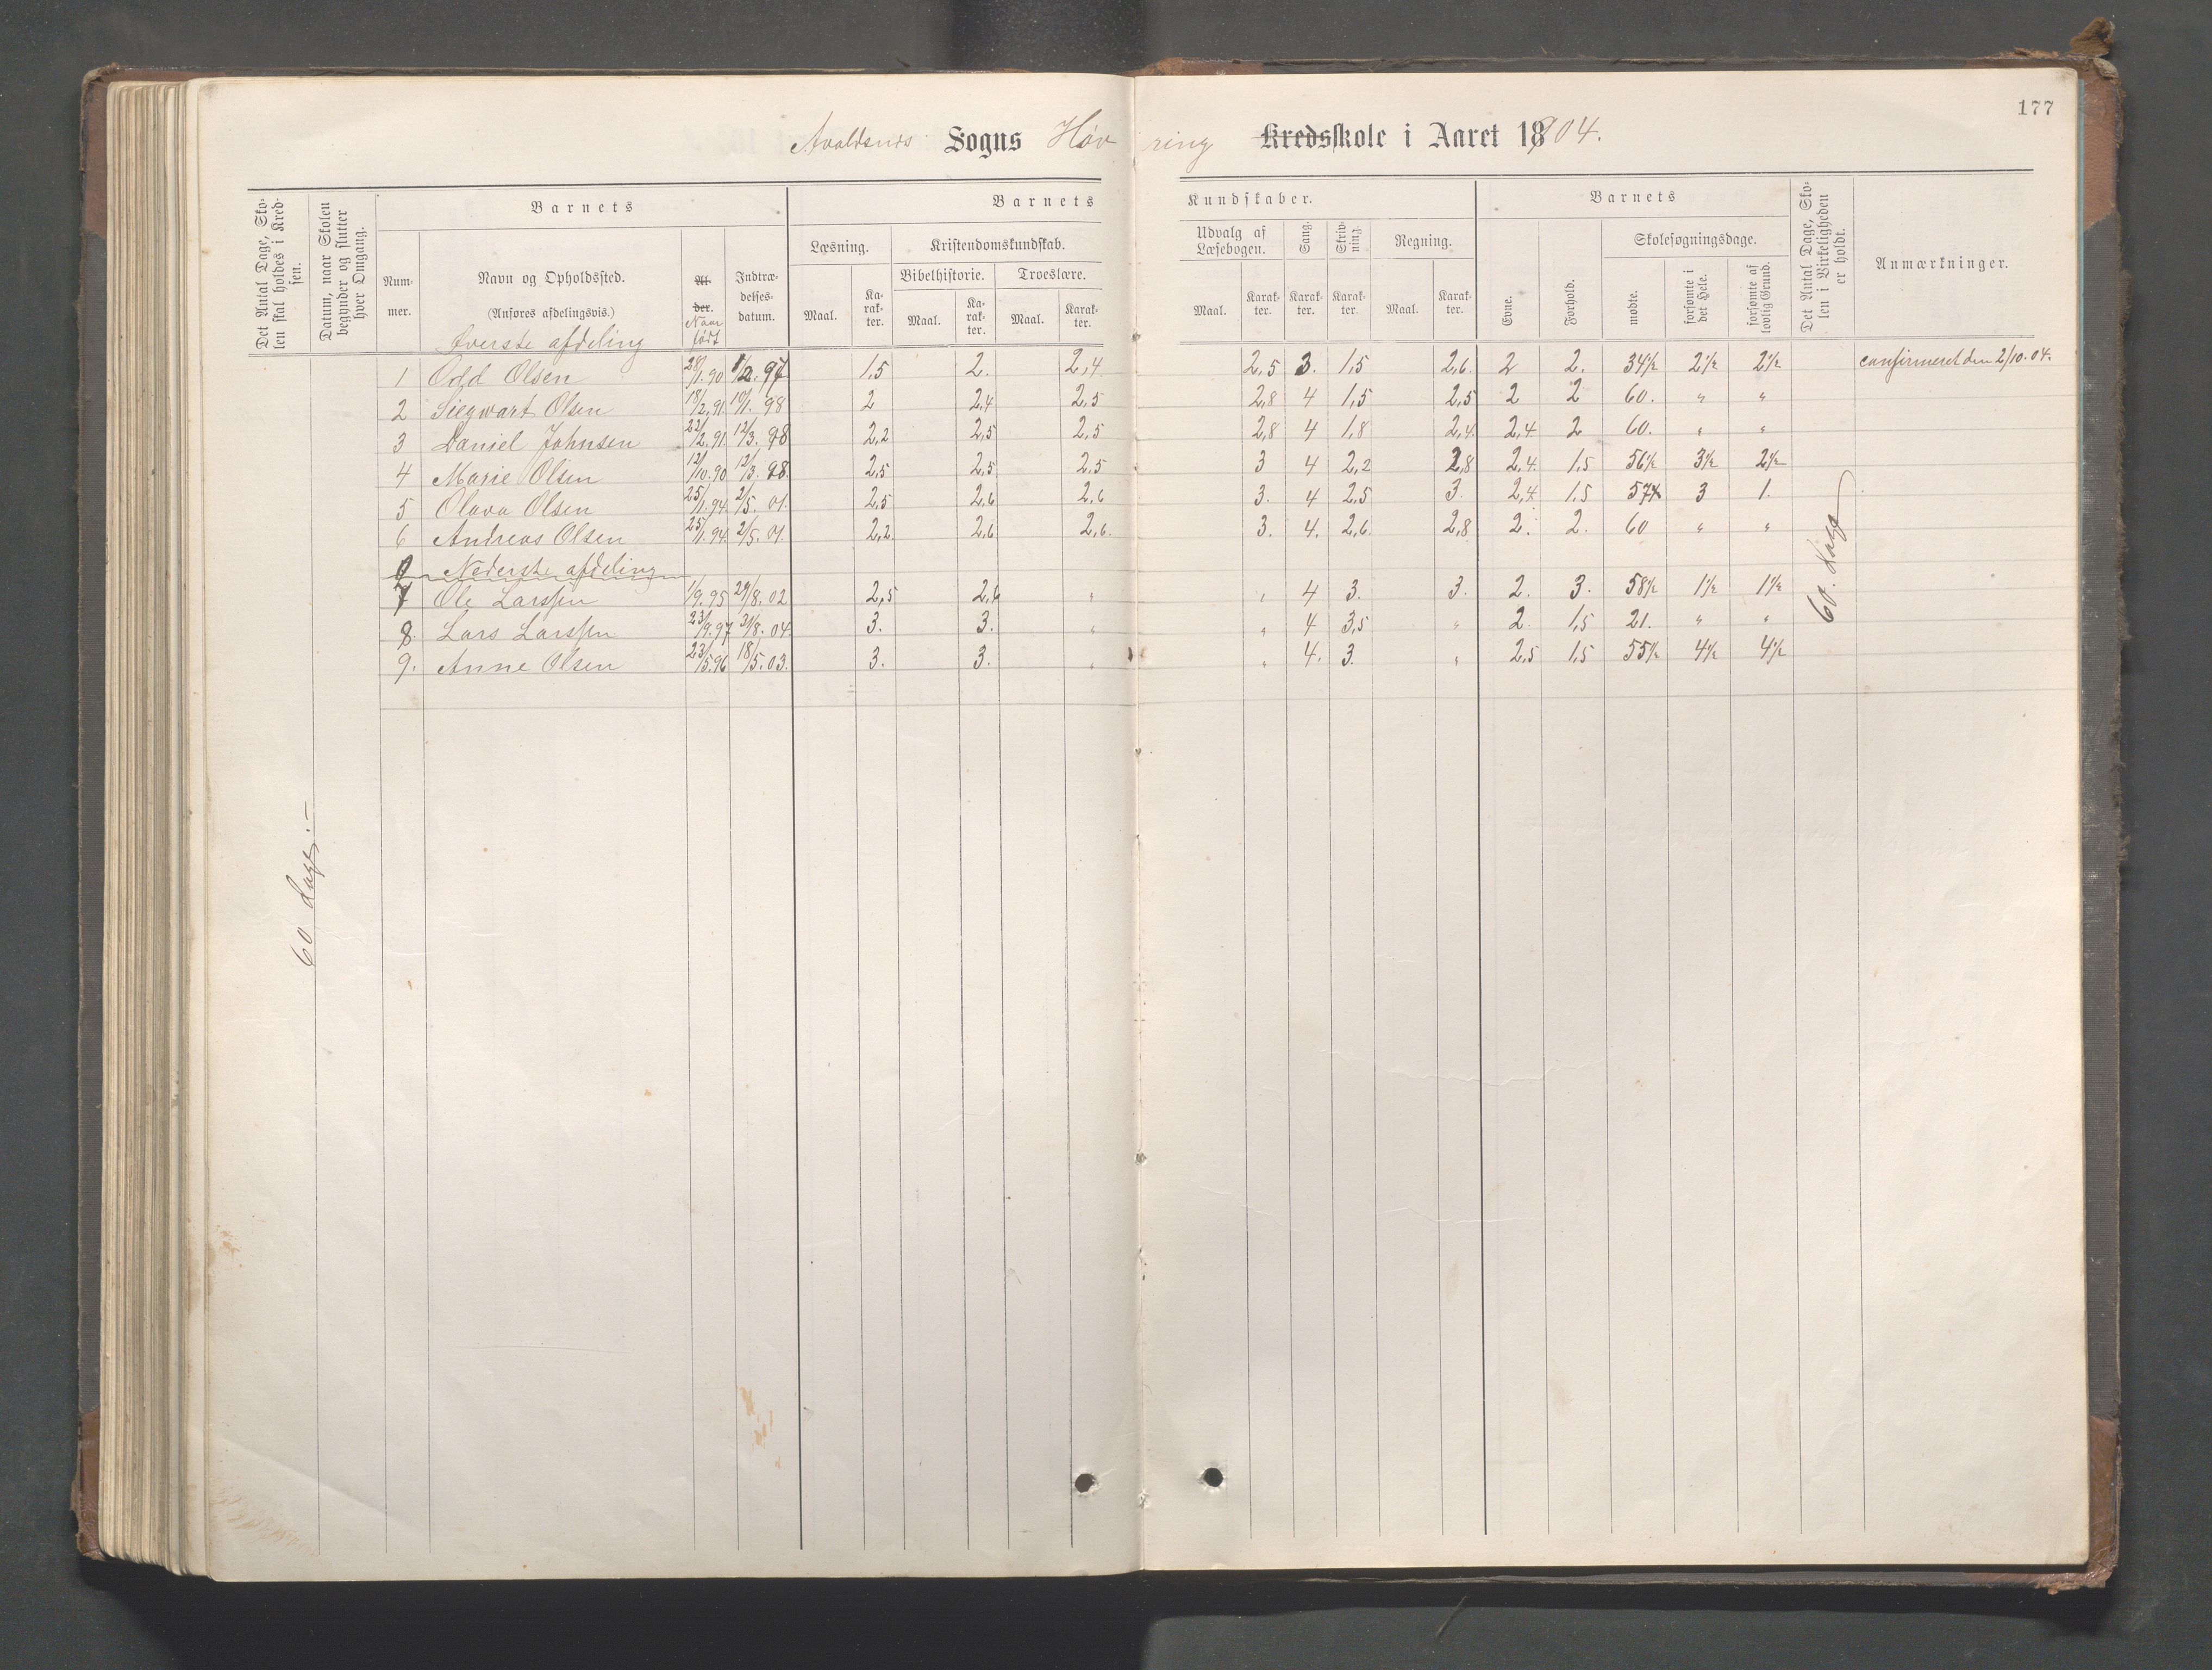 177
Avaldsnes Sogns Høvring Kredsskole i Aaret 18904.
Det Antal Dage, Skolen skal holdes i Kredsen.
Datum, naar Skolen begynder og slutter hver Omgang.
Barnets
Nummer.
Navn og Opholdssted.
(Anføres afdelingsvis.)
Alder. Naar født
Indtrædelsesdatum.
Barnets Kundskaber.
Læsning. Kristendomskundskab. Udvalg af Læsebogen. Sang. Skrivning. Regning.
Bibelhistorie. Troeslære.
Maal. Karakter. Maal. Karakter. Maal. Karakter. Maal. Karakter. Karakter. Karakter. Maal. Karakter.
Barnets
Evne. Forhold. Skolesøgningsdage.
mødte. forsømte i det Hele. forsømte af lovlig Grund.
Det Antal Dage, Skolen i Virkeligheden er holdt.
Anmærkninger.
Øverste afdeling
1 Odd Olsen 28/1.90 1/2.97 1,5 2. 2,4 2,5 3. 1,5 2,6. 2 2. 34½ 2½ 2½ confirmeret den 2/10.04.
2 Siegwart Olsen 18/2.91 10/1.98 2 2,4 2,5 2,8 4 1,5 2,5 2 2 60. " "
3 Daniel Johnsen 22/2.91 12/3.98 2,2 2,5 2,5 2,8 4 1,8 2,4. 2,4. 2 60. " "
4 Marie Olsen 12/10.90 12/3.98. 2,5 2,5 2,5 3 4 2,2 2,8 2,4. 1,5 56½ 3½ 2½
5 Olava Olsen 25/1.94. 2/5.01. 2,5 2,6 2,6 3. 4 2,5 3. 2,4 1,5 57 3 1.
6 Andreas Olsen 25/1.94. 2/5.01. 2,2 2,6 2,6. 3. 4. 2,6. 2,8 2. 2. 60 " "
Nederste afdeling
7 Ole Larssen 1/9.95 29/8.02 2,5 2,6 " " 4 3. 3. 2. 3. 58½ 1½ 1½
8. Lars Larssen 23/9.97 31/8.04. 3. 3. " " 4 3,5 " 2. 1,5 21. " "
9. Anne Olsen 23/5.96 18/5.03. 3. 3. " " 4. 3. " 2,5 1,5 55½ 4½ 4½
60 dage.
60. dage